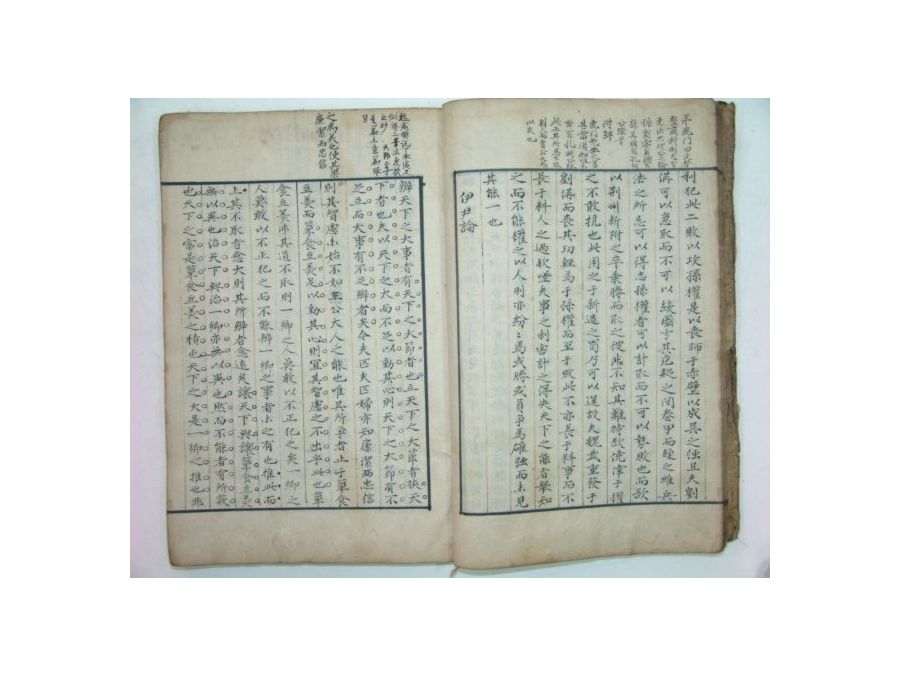 茅鹿門曰
利犯此二敗以攻孫權是以喪師于赤壁以成吳之强且夫劉
備可以急取而不可以緩圖方其危疑之間卷甲而趨之雖兵
法之所忌可以得志孫權者可以計取而不可以勢敗也而欲
以荊州新附之卒乘勝而取之彼非不知其難特欲僥倖于權
之不敢抗也此用之于新造之蜀乃可以逞故夫魏武重發于
劉備而喪其功輕爲于孫權而至于敗此不亦長于料事而不
長于料人之過欤嗟夫事之利害計之得失天下之能者舉知
之而不能權之以人則亦紛〻焉或勝或負爭爲雄强而未見
其能一也
伊尹論
辨天下之大事者有天下之大節者也立天下之大節者狹天
下者也夫以天下之大而不足以動其心則天下之大節有不
足立而大事有不足辨者矣今夫匹夫匹婦亦知廉潔而忠信
之爲美也使其果
廉潔而忠信
則其智慮未始不如王公大人之能也唯其所爭者止于簞食
豆羹而簞食豆羹足以動其心則宜其智慮之不出乎此也簞
食豆羹非其道不取則一鄉之人莫敢以不正犯之矣一鄉之
人莫敢以不正犯之而不能辨一鄉之事者未之有也推此而
上其不取者愈大則其所辨者愈遠矣讓天下與讓簞食豆羹
無以異也治天下與治一鄉亦無以異也然而不能者有所蔽
也天下之富是簞食豆羹之積也天下之大是一鄉之推也非